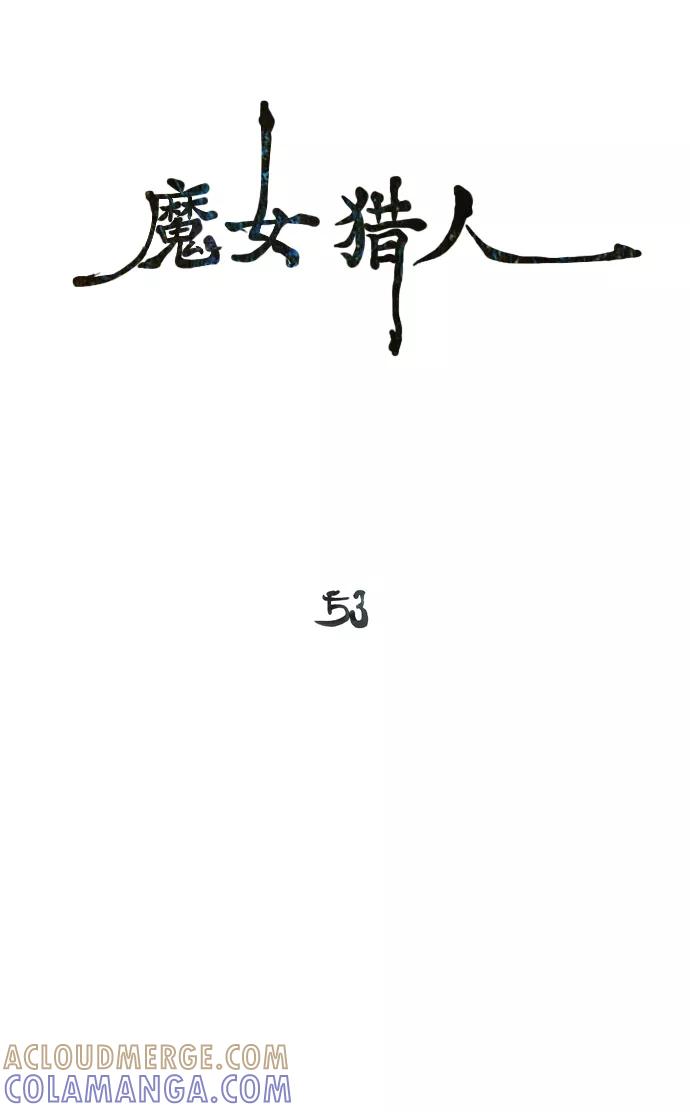 魔女猎人
53
ACLOUDMERGE.COM
COLAMANGA.COM